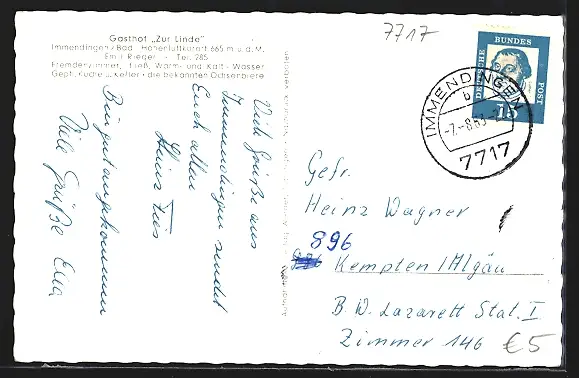 7717
Gasthof „Zur Linde"
Immendingen/Bad. Höhenluftkurort 665 m ü. d. M.
Emil Rieger - Tel. 785
Fremdenzimmer, fließ. Warm- und Kalt-Wasser
Gepfl. Küche u. Keller - die bekannten Ochsenbiere
Viele Grüße aus
Immendingen sendet
Euch allen
Heinz
Bin gut angekommen
Viele Grüße
DEUTSCHE BUNDES POST
15
IMMENDINGEN
b
-7.-8.63
7717
Gefr.
Heinz Wagner
896
Kempten/Allgäu
B. W. Lazarett Stat. I
Zimmer 146
€5